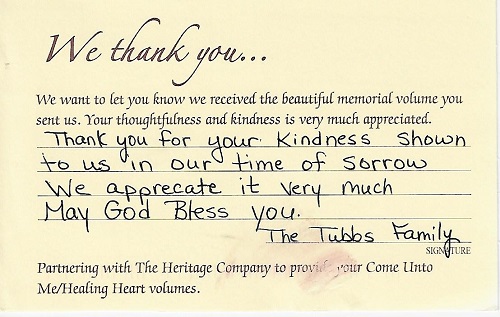 We thank you...
We want to let you know we received the beautiful memorial volume you
sent us. Your thoughtfulness and kindness is very much appreciated.
Thank you for your kindness shown
to us in our time of sorrow
We apprecate it very much
May God Bless you.
The Tubbs Family
SIGNATURE
Partnering with The Heritage Company to provide your Come Unto
Me/Healing Heart volumes.